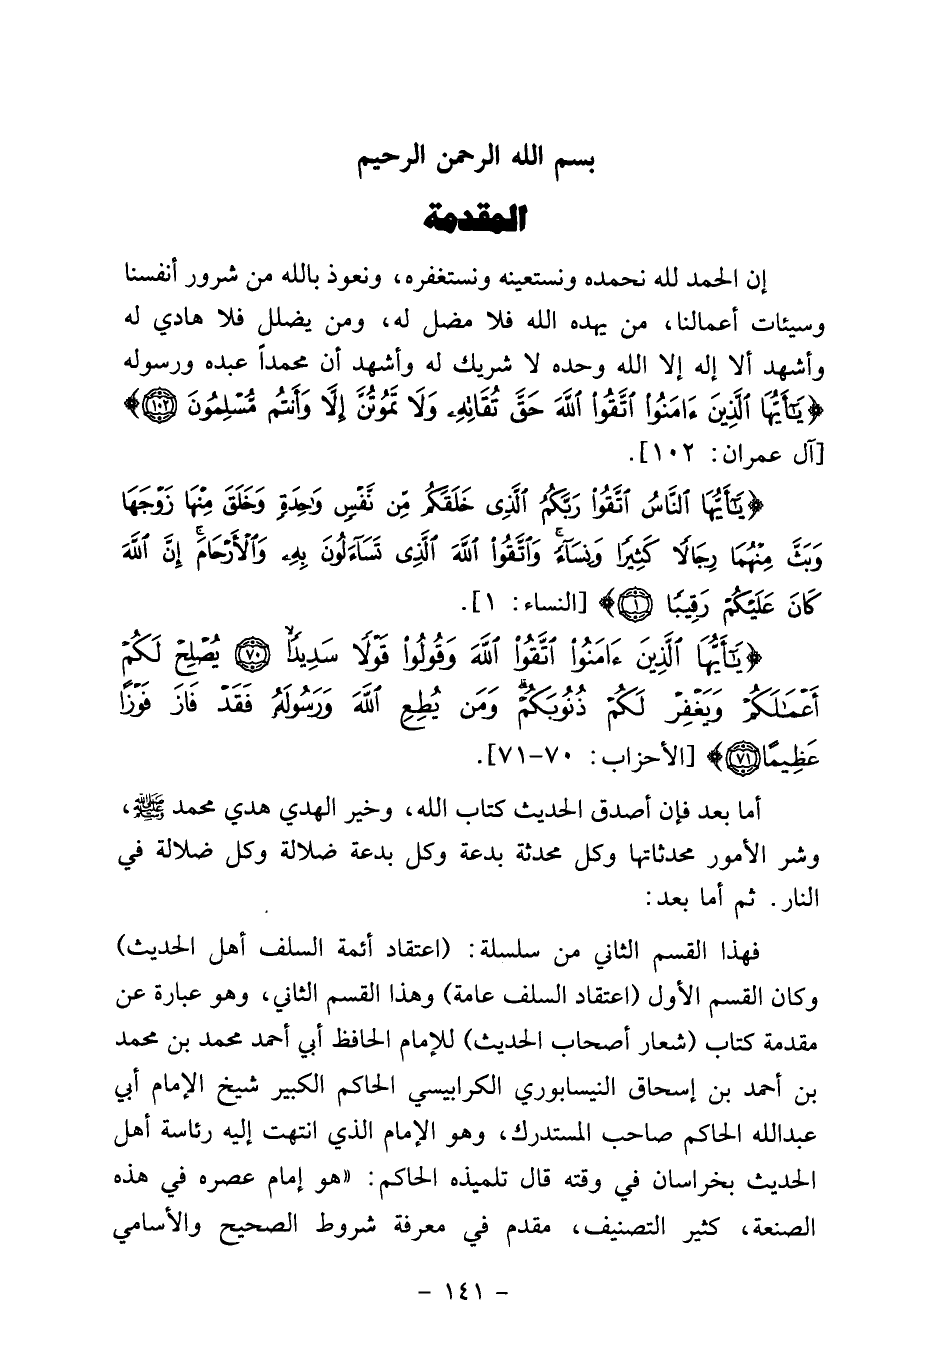 بسم الله الرحمن الرحيم
المقدمة
إن الحمد لله نحمده ونستعينه ونستغفره، ونعوذ بالله من شرور أنفسنا
وسيئات أعمالنا، من يهده الله فلا مضل له، ومن يضلل فلا هادي له
وأشهد ألا إله إلا الله وحده لا شريك له وأشهد أن محمداً عبده ورسوله
﴿يَٰٓأَيُّهَا ٱلَّذِينَ ءَامَنُوا۟ ٱتَّقُوا۟ ٱللَّهَ حَقَّ تُقَاتِهِۦ وَلَا تَمُوتُنَّ إِلَّا وَأَنتُم مُّسْلِمُونَ ١٠٢﴾
[آل عمران: ١٠٢].
﴿يَٰٓأَيُّهَا ٱلنَّاسُ ٱتَّقُوا۟ رَبَّكُمُ ٱلَّذِى خَلَقَكُم مِّن نَّفْسٍ وَٰحِدَةٍ وَخَلَقَ مِنْهَا زَوْجَهَا
وَبَثَّ مِنْهُمَا رِجَالًا كَثِيرًا وَنِسَآءً ۚ وَٱتَّقُوا۟ ٱللَّهَ ٱلَّذِى تَسَآءَلُونَ بِهِۦ وَٱلْأَرْحَامَ ۚ إِنَّ ٱللَّهَ
كَانَ عَلَيْكُمْ رَقِيبًا ١﴾ [النساء: ١].
﴿يَٰٓأَيُّهَا ٱلَّذِينَ ءَامَنُوا۟ ٱتَّقُوا۟ ٱللَّهَ وَقُولُوا۟ قَوْلًا سَدِيدًا ٧٠ يُصْلِحْ لَكُمْ
أَعْمَٰلَكُمْ وَيَغْفِرْ لَكُمْ ذُنُوبَكُمْ ۗ وَمَن يُطِعِ ٱللَّهَ وَرَسُولَهُۥ فَقَدْ فَازَ فَوْزًا
عَظِيمًا ٧١﴾ [الأحزاب: ٧٠-٧١].
أما بعد فإن أصدق الحديث كتاب الله، وخير الهدي هدي محمد ﷺ،
وشر الأمور محدثاتها وكل محدثة بدعة وكل بدعة ضلالة وكل ضلالة في
النار. ثم أما بعد:
فهذا القسم الثاني من سلسلة: (اعتقاد أئمة السلف أهل الحديث)
وكان القسم الأول (اعتقاد السلف عامة) وهذا القسم الثاني، وهو عبارة عن
مقدمة كتاب (شعار أصحاب الحديث) للإمام الحافظ أبي أحمد محمد بن محمد
بن أحمد بن إسحاق النيسابوري الكرابيسي الحاكم الكبير شيخ الإمام أبي
عبدالله الحاكم صاحب المستدرك، وهو الإمام الذي انتهت إليه رئاسة أهل
الحديث بخراسان في وقته قال تلميذه الحاكم: «هو إمام عصره في هذه
الصنعة، كثير التصنيف، مقدم في معرفة شروط الصحيح والأسامي
- ١٤١ -